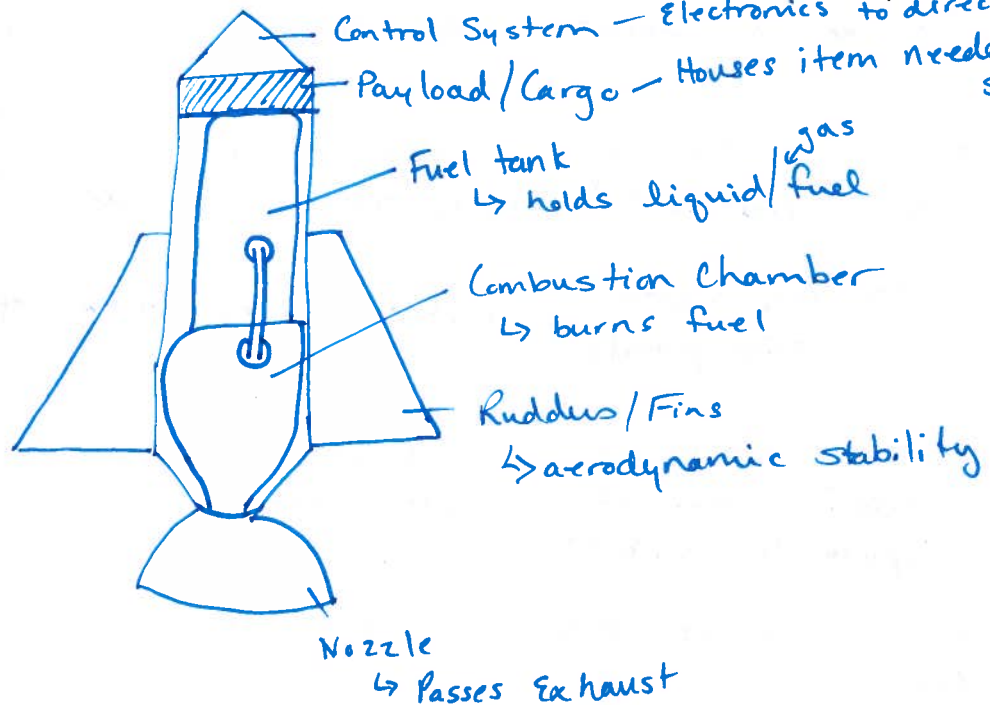 Control System – Electronics to direc
Payload/Cargo – Houses item neede
s
gas
Fuel tank
↳ holds liquid/fuel
Combustion Chamber
↳ burns fuel
Rudders/Fins
↳ aerodynamic stability
Nozzle
↳ Passes Exhaust